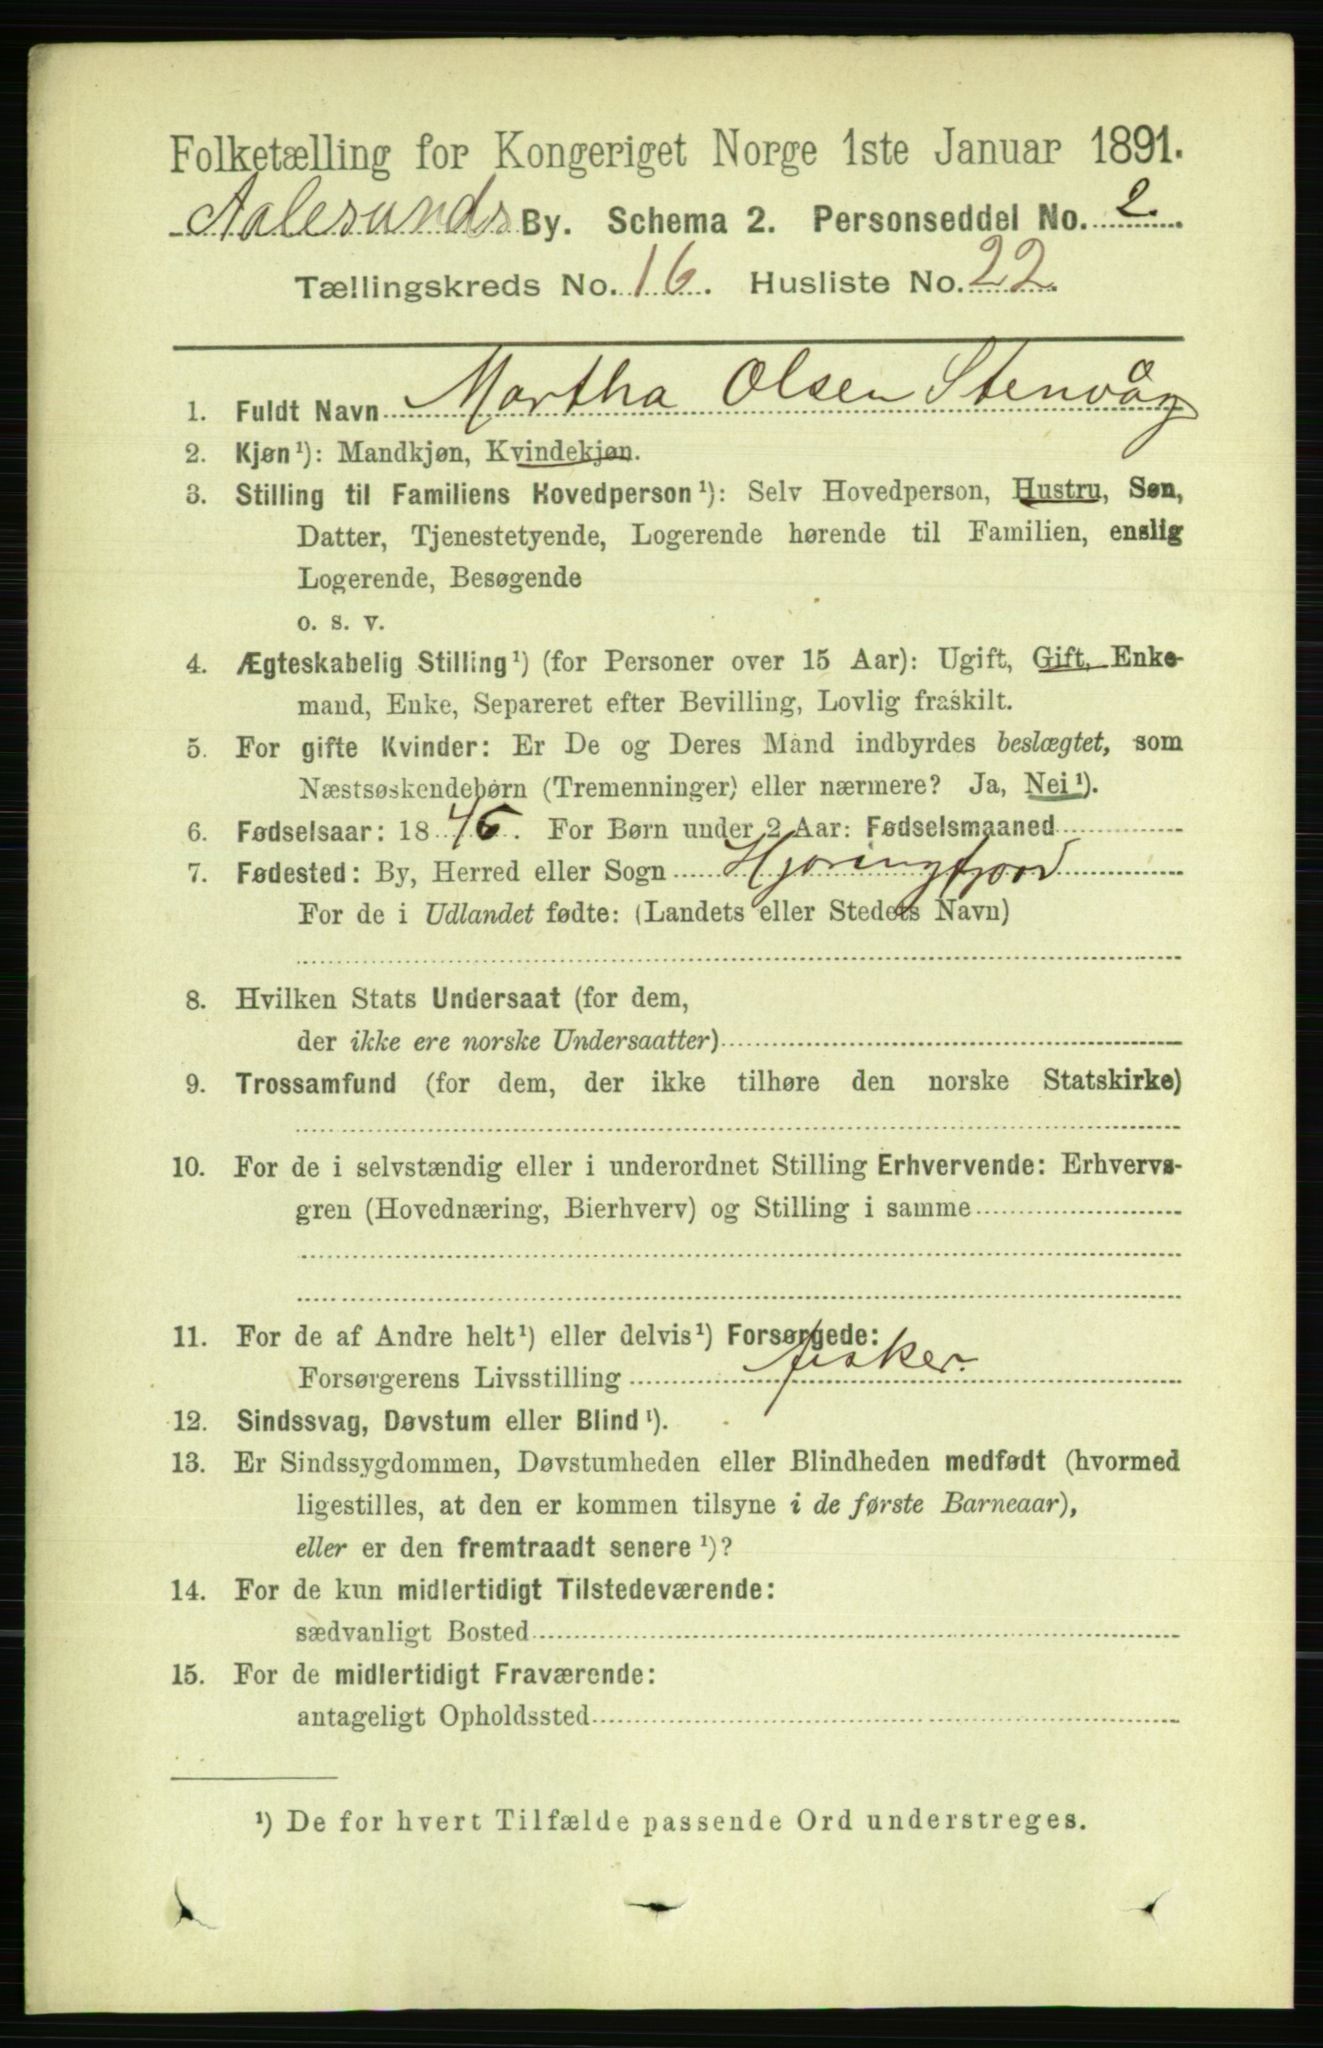 Folketælling for Kongeriget Norge 1ste Januar 1891.
Aalesunds By. Schema 2. Personseddel No. 2.
Tællingskreds No. 16. Husliste No. 22.
1. Fuldt Navn Martha Olsen Stenvåg
2. Kjøn¹): Mandkjøn, Kvindekjøn.
3. Stilling til Familiens Hovedperson¹): Selv Hovedperson, Hustru, Søn,
Datter, Tjenestetyende, Logerende hørende til Familien, enslig
Logerende, Besøgende
o. s. v.
4. Ægteskabelig Stilling¹) (for Personer over 15 Aar): Ugift, Gift, Enke-
mand, Enke, Separeret efter Bevilling, Lovlig fraskilt.
5. For gifte Kvinder: Er De og Deres Mand indbyrdes beslægtet, som
Næstsøskendebørn (Tremenninger) eller nærmere? Ja, Nei¹).
6. Fødselsaar: 1846. For Børn under 2 Aar: Fødselsmaaned
7. Fødested: By, Herred eller Sogn Hjøringfjord
For de i Udlandet fødte: (Landets eller Stedets Navn)
8. Hvilken Stats Undersaat (for dem,
der ikke ere norske Undersaatter)
9. Trossamfund (for dem, der ikke tilhøre den norske Statskirke)
10. For de i selvstændig eller i underordnet Stilling Erhvervende: Erhvervs-
gren (Hovednæring, Bierhverv) og Stilling i samme
11. For de af Andre helt¹) eller delvis¹) Forsørgede:
Forsørgerens Livsstilling fisker.
12. Sindssvag, Døvstum eller Blind¹).
13. Er Sindssygdommen, Døvstumheden eller Blindheden medfødt (hvormed
ligestilles, at den er kommen tilsyne i de første Barneaar),
eller er den fremtraadt senere¹)?
14. For de kun midlertidigt Tilstedeværende:
sædvanligt Bosted
15. For de midlertidigt Fraværende:
antageligt Opholdssted
¹) De for hvert Tilfælde passende Ord understreges.